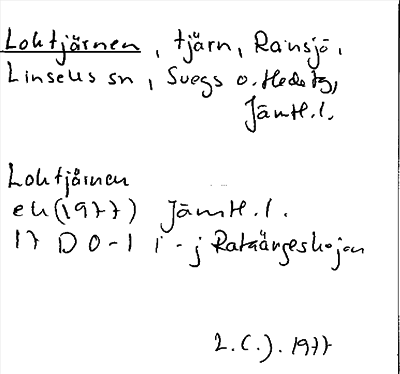 Lohtjärnen, tjärn, Ransjö,
Linsells sn, Svegs o. Hede tg,
Jämtl.l.
Lohtjärnen
ek (1977) Jämtl.l.
17 D 0-1 i-j
1977